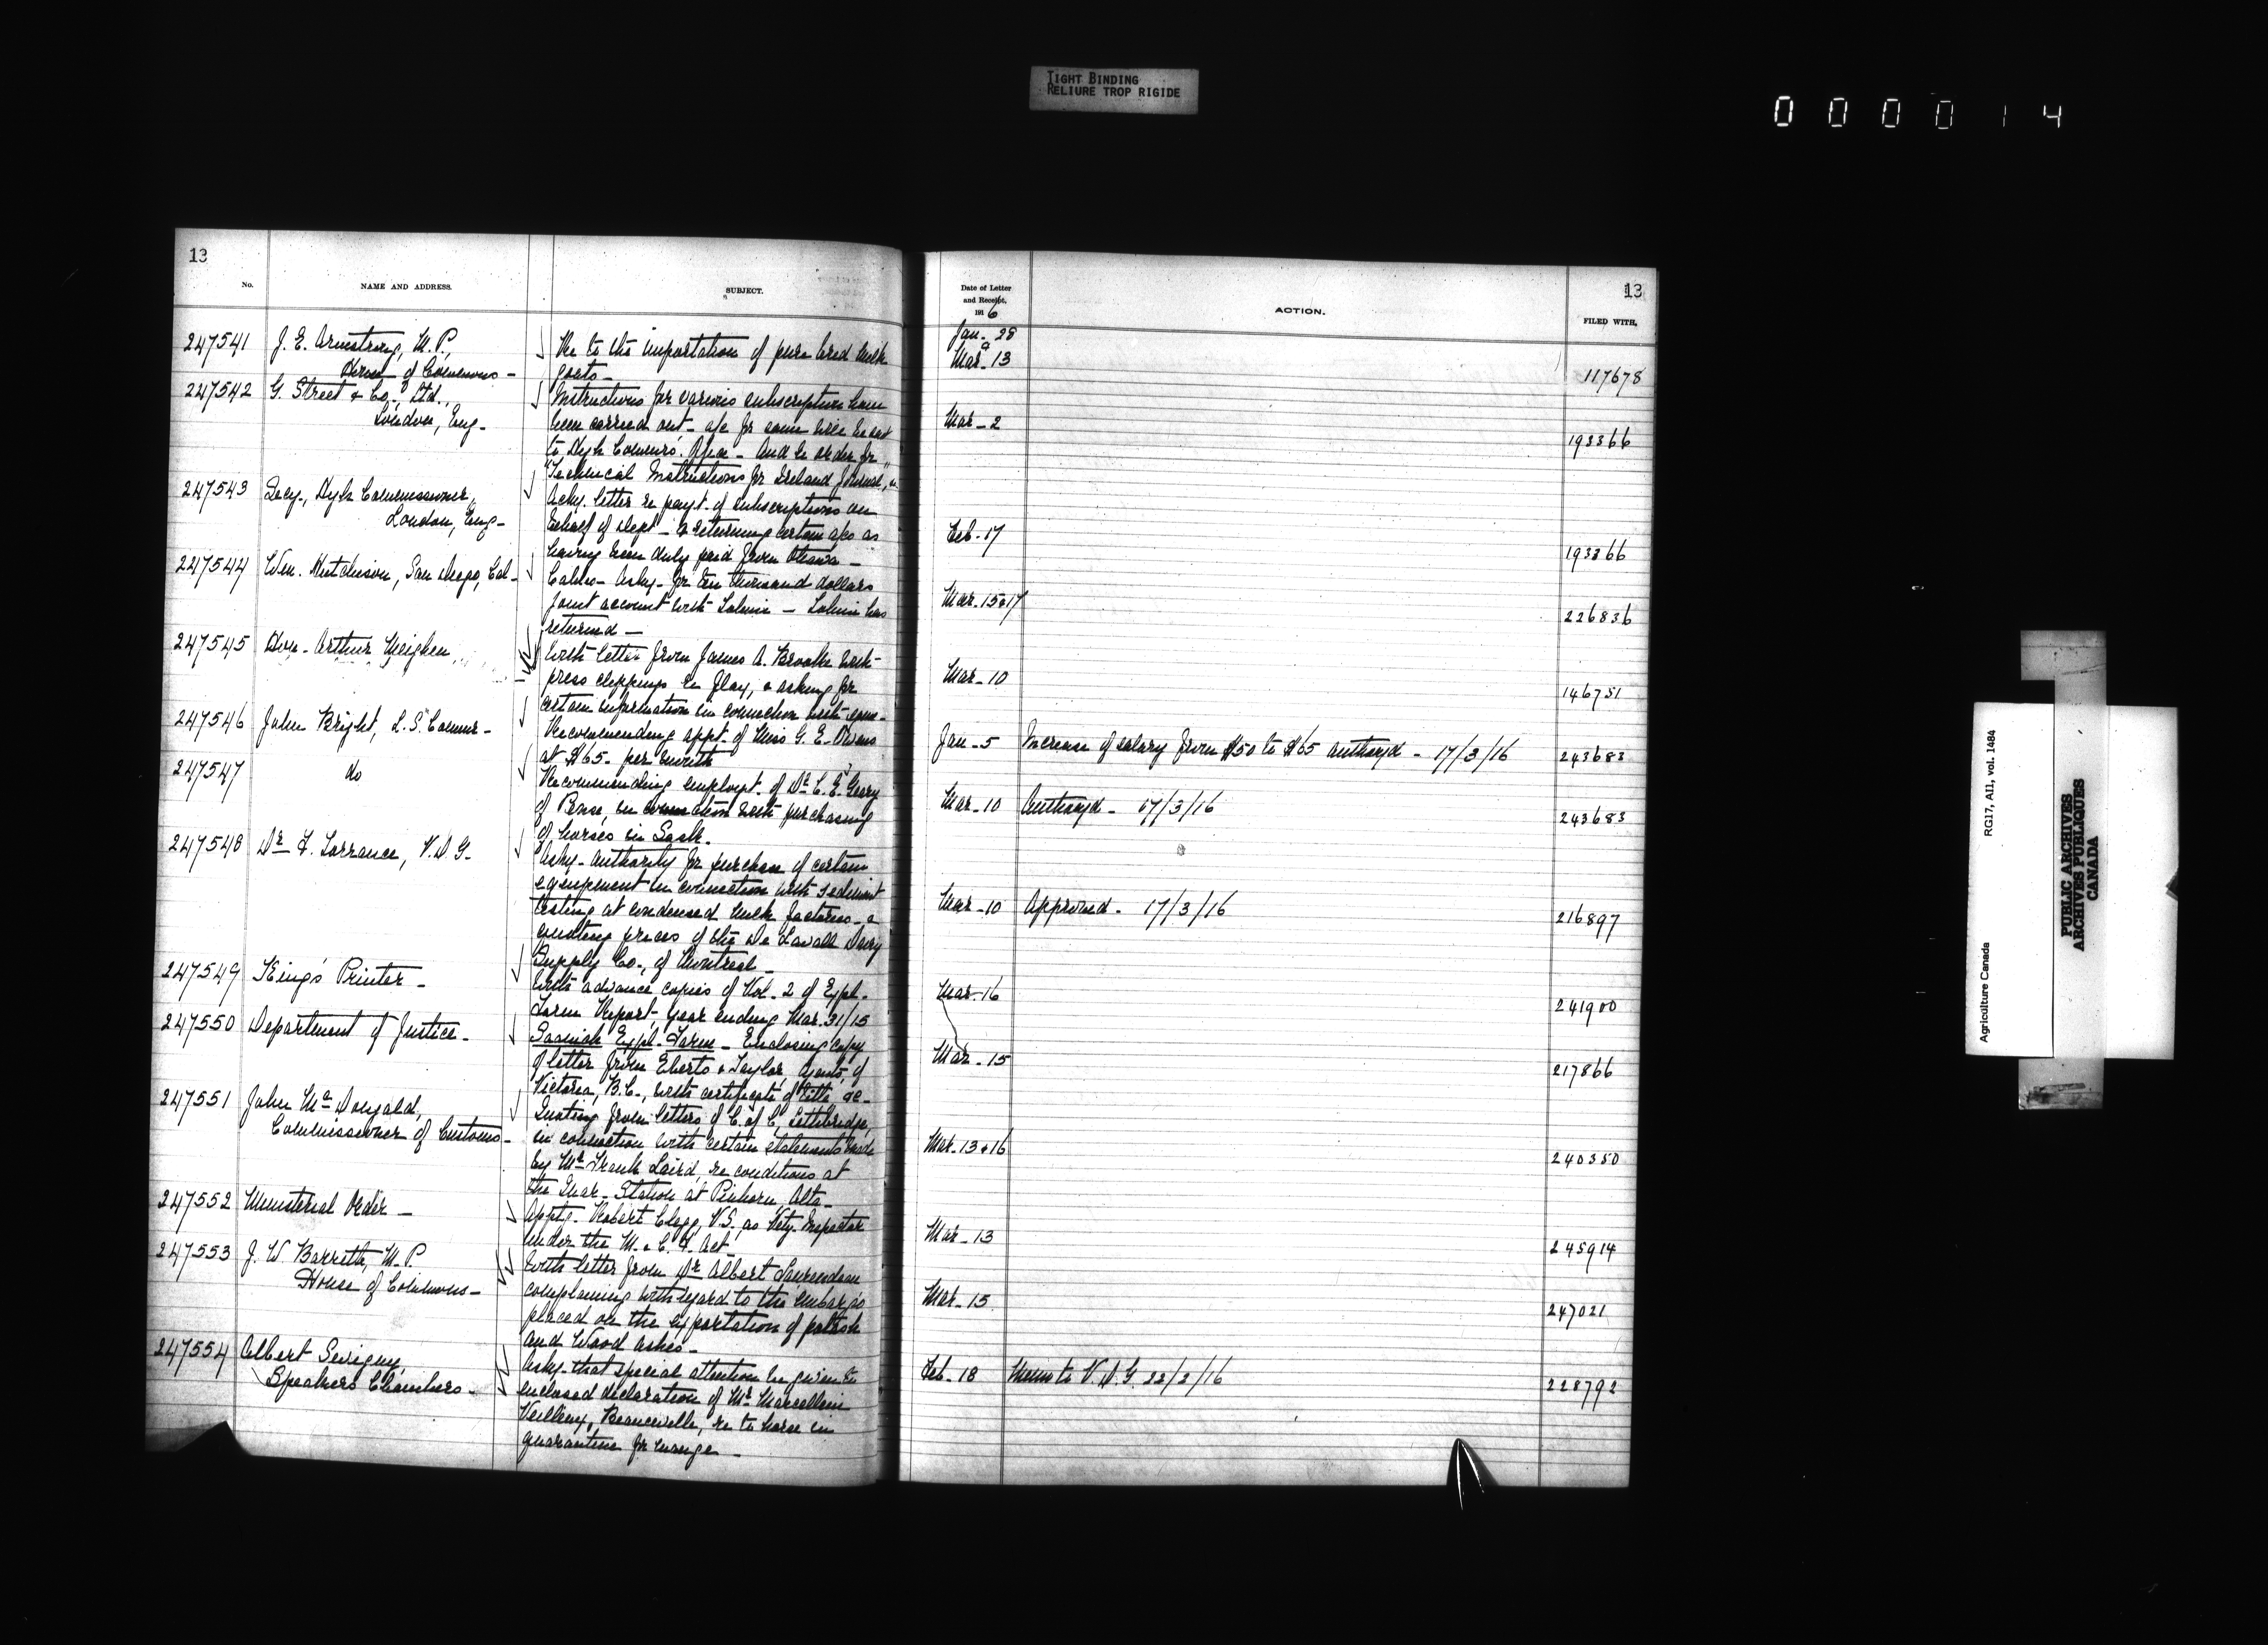 TIGHT BINDING
RELIURE TROP RIGIDE
000014
13
No.
NAME AND ADDRESS.
SUBJECT.
247541
J. E. Armstrong, M.P.,
House of Commons -
Re to the importation of pure bred milk
goats -
247542
G. Street & Co., Ltd.,
London, Eng -
Instructions for various subscriptions have
been carried out - a/c for same will be sent
to High Commrs'. Office - And re order for
"Technical Instructions for Ireland Journal",
247543
Secy., High Commissioner,
London, Eng -
Ackg. letter re payt. of subscriptions on
behalf of Dept - & returning certain a/cs as
having been duly paid from Ottawa -
247544
Wm. Hutchison, San Diego, Cal -
Cables - Askg - for ten thousand dollars
joint account with
returned -
247545
Hon. Arthur Meighen
With letter from James A. Brooks with
press clippings re flax, & asking for
certain information in connection with same -
247546
John Bright, L.S. Commr -
Recommending appt. of Miss G. E. Owens
at $65 - per month
247547
do
Recommending employt. of Dr. C. E. Geary
of Pense, in connection with purchasing
of horses in Sask.
247548
Dr. F. Torrance, V.D.G.
Askg - authority for purchase of certain
equipment in connection with sediment
testing at condensed milk factories - &
quoting prices of the De Lavall Dairy
Supply Co., of Montreal -
247549
King's Printer -
With advance copies of Vol. 2 of Exptl.
Farm Report - year ending Mar. 31/15
247550
Department of Justice -
Saanich Exptl. Farm - Enclosing copy
of letter from Eberts & Taylor, Agents, of
Victoria, B.C., with certificate of title &c -
247551
John McDougald,
Commissioner of Customs -
Quoting from letters of C. of C., Lethbridge,
in connection with certain statements made
by Mr. Frank Laird, re conditions at
the Quar. Station at Pinhorn, Alta -
247552
Ministerial Order -
Apptg - Robert Clegg, V.S. as Vety. Inspector
under the M. & C. F. Act
247553
J. W. Barrette, M.P.
House of Commons -
With letter from Dr. Albert Laurendeau
complaining with regard to the embargo
placed on the exportation of potash
and wood ashes -
247554
Albert Sevigny,
Speakers Chambers -
Askg - that special attention be given to
enclosed declaration of Mr. Marcellin
Veilleux, Beauceville, re to horse in
quarantine for mange -
13
Date of Letter
and Receipt,
1916
ACTION.
FILED WITH.
Jan - 28
&
Mar - 13
117678
Mar - 2
193366
Feb - 17
193366
Mar - 15 & 17
226836
Mar - 10
146751
Jan - 5
Increase of salary from $50 to $65 authoryd - 17/3/16
243683
Mar - 10
Authoryd - 17/3/16
243683
Mar - 10
Approved - 17/3/16
216897
Mar - 16
241900
Mar - 15
217866
Mar - 13 & 16
240350
Mar - 13
245914
Mar - 15
247021
Feb - 18
Memo to V.D.G. 22/2/16
228792
Agriculture Canada
RG17, AII, vol. 1484
PUBLIC ARCHIVES
ARCHIVES PUBLIQUES
CANADA